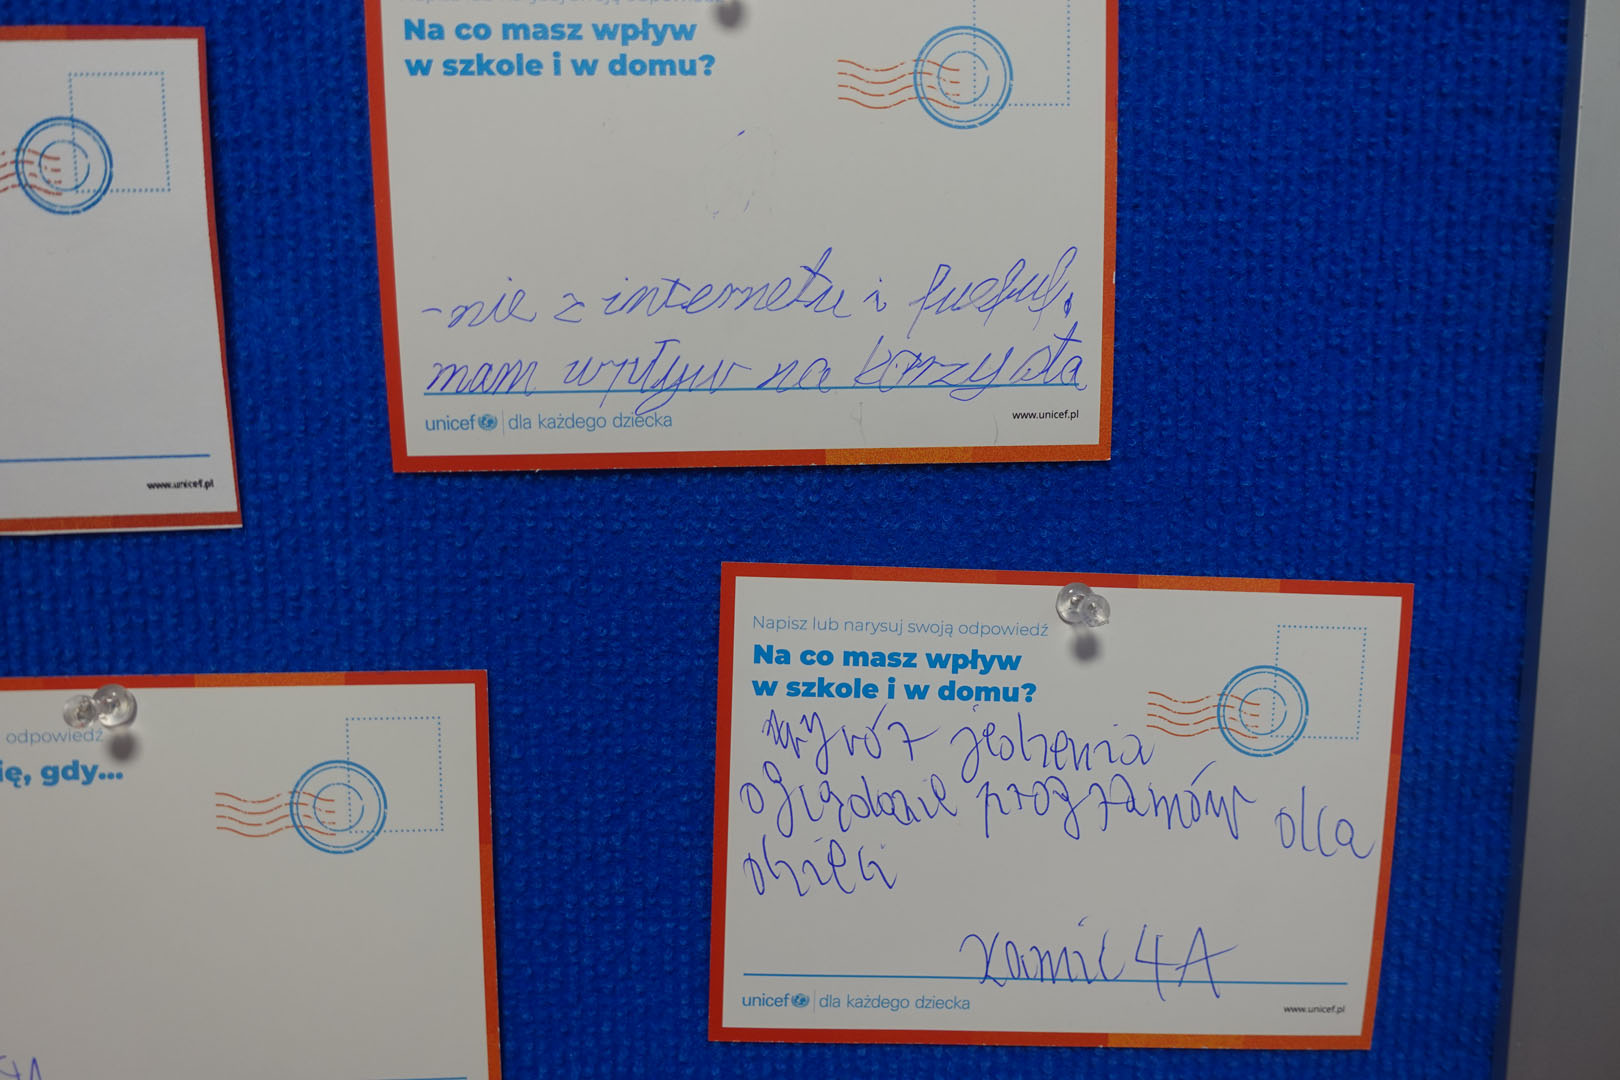 Na co masz wpływ
w szkole i w domu?
-nie z internetu i
mam wpływ na korzysta
unicef dla każdego dziecka
www.unicef.pl
www.unicef.pl
Napisz lub narysuj swoją odpowiedź
Na co masz wpływ
w szkole i w domu?
wybór jedzenia
oglądanie programów dla
dzieci
Kamil 4A
unicef dla każdego dziecka
www.unicef.pl
odpowiedź
ię, gdy...